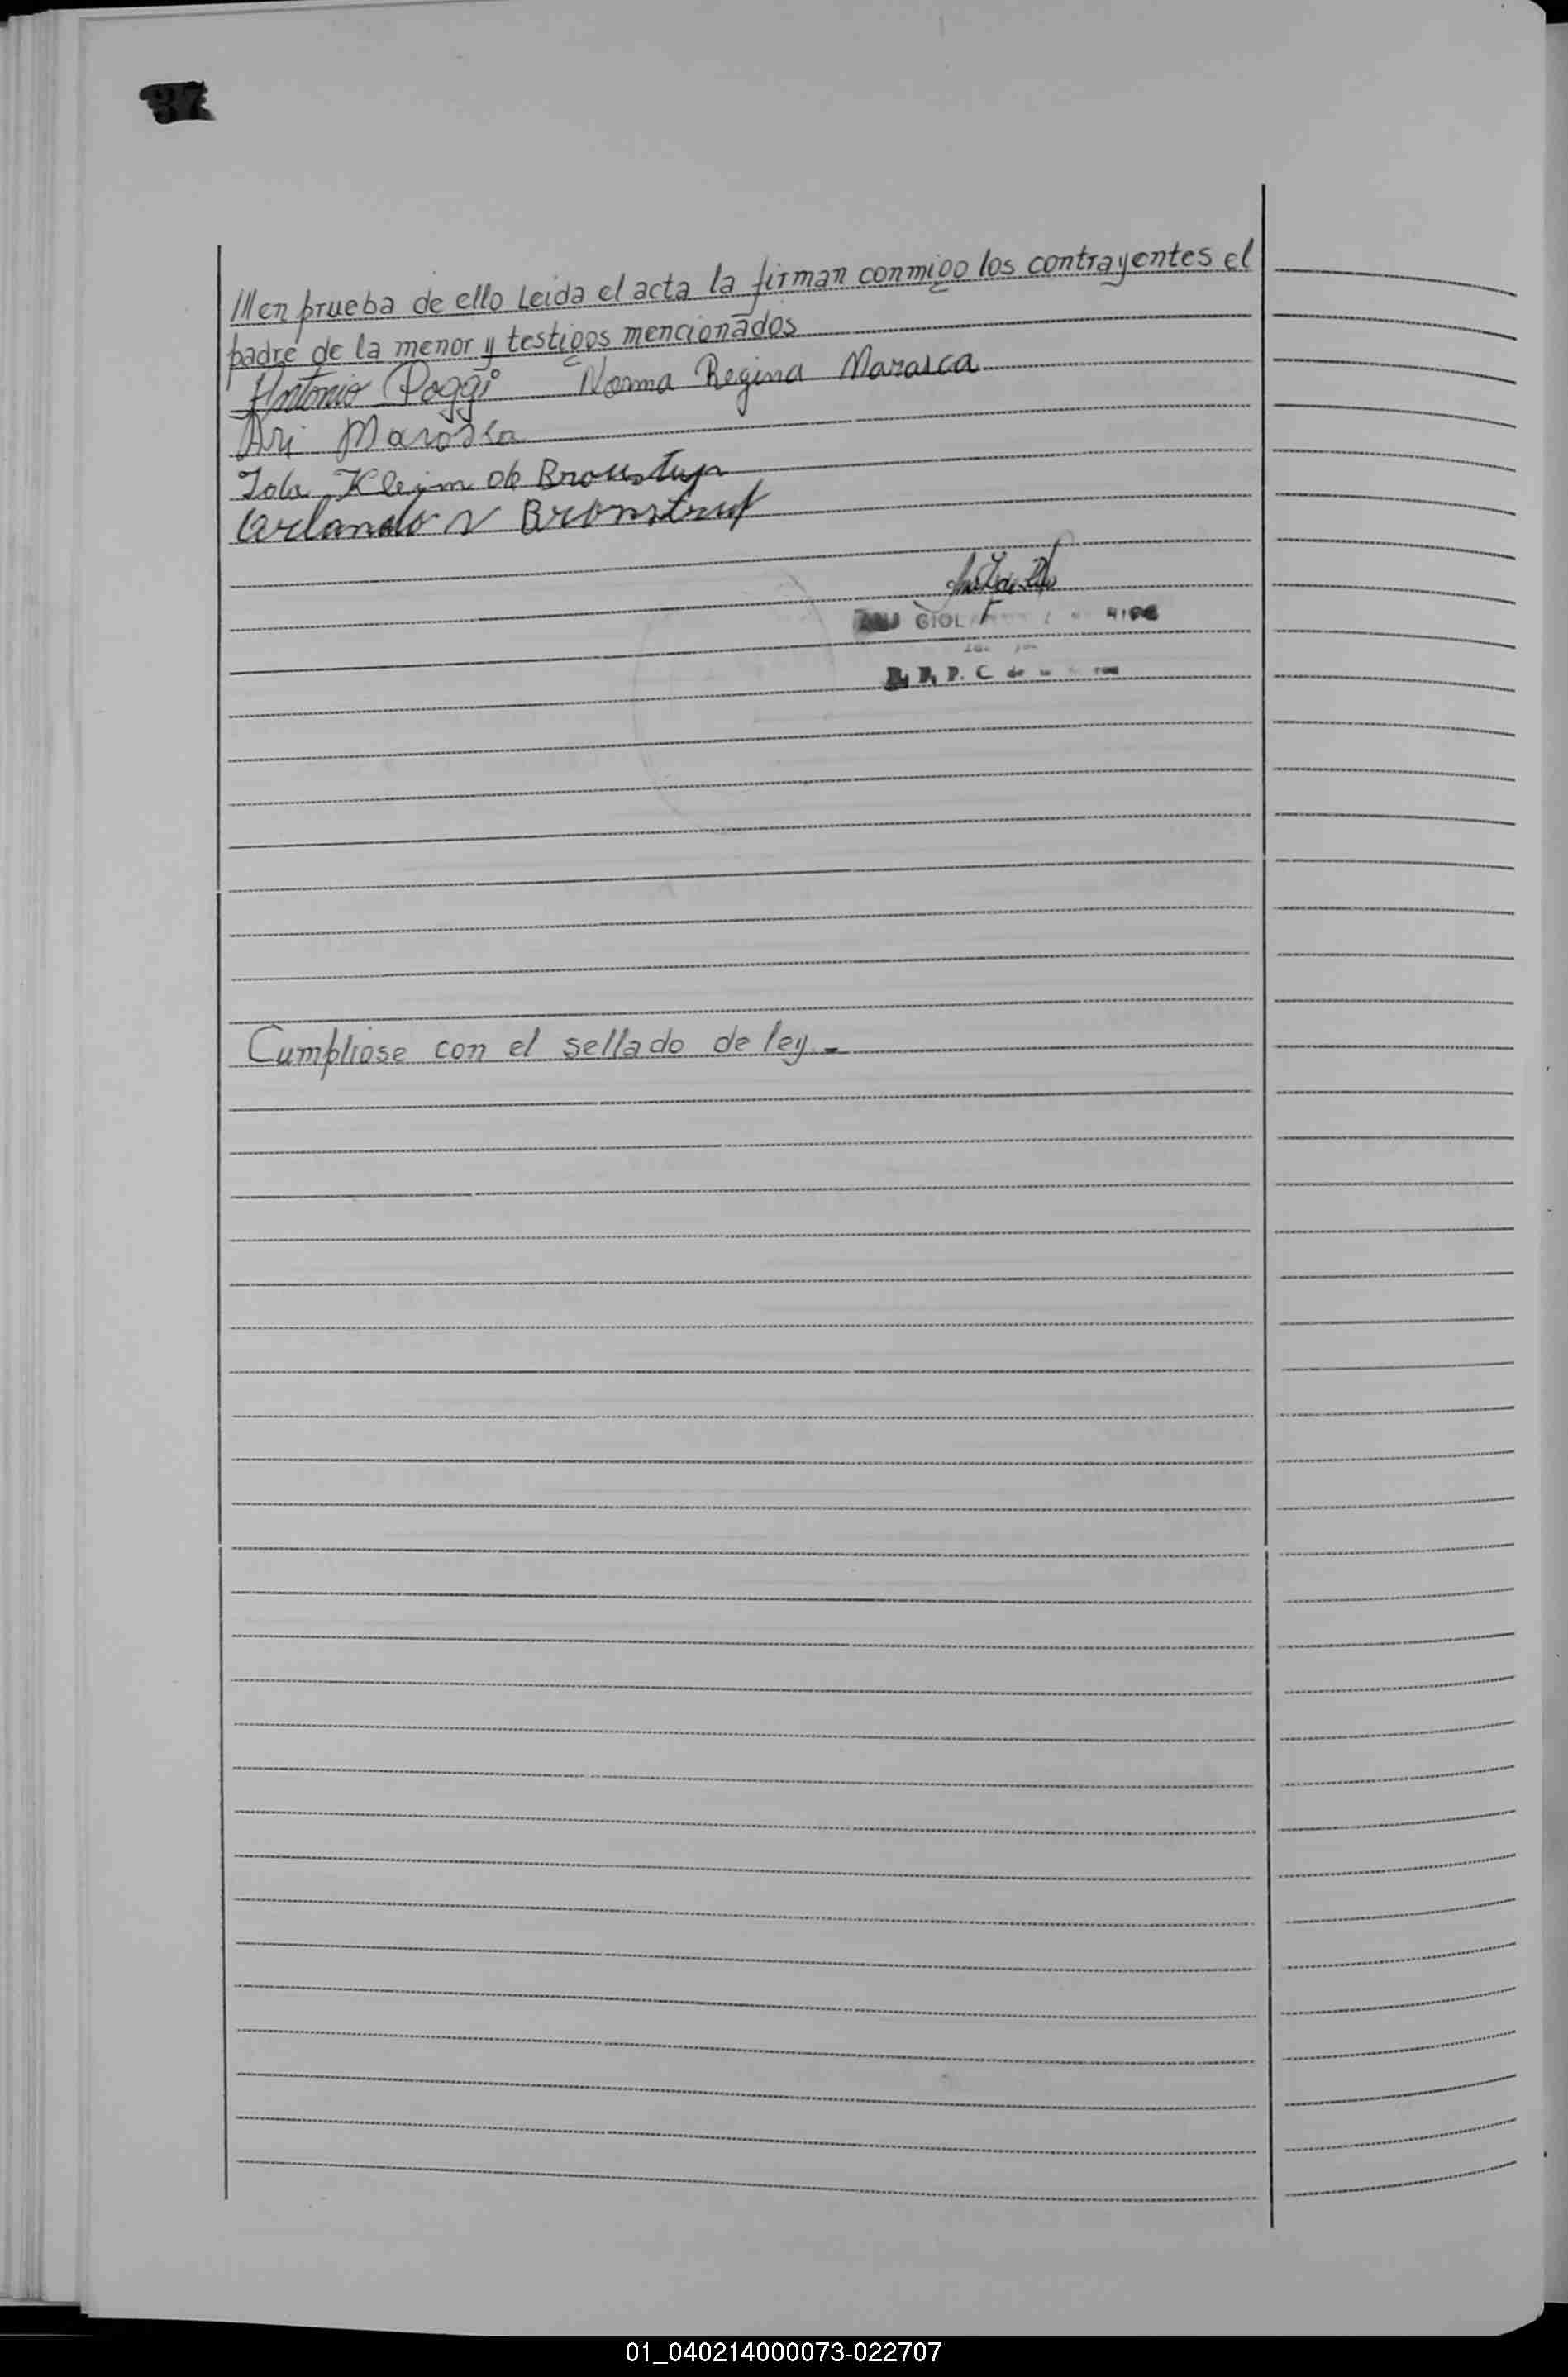 37
///en prueba de ello Leida el acta la firman conmigo los contrayentes el
padre de la menor y testigos mencionados
Antonio Poggi Norma Regina Marasca
Ari Marasca
Ida Kleim de Bronstrup
Orlando N Bronstrup
GIOL
R. P. P. C. de
Cumpliose con el sellado de ley.-
01_040214000073-022707